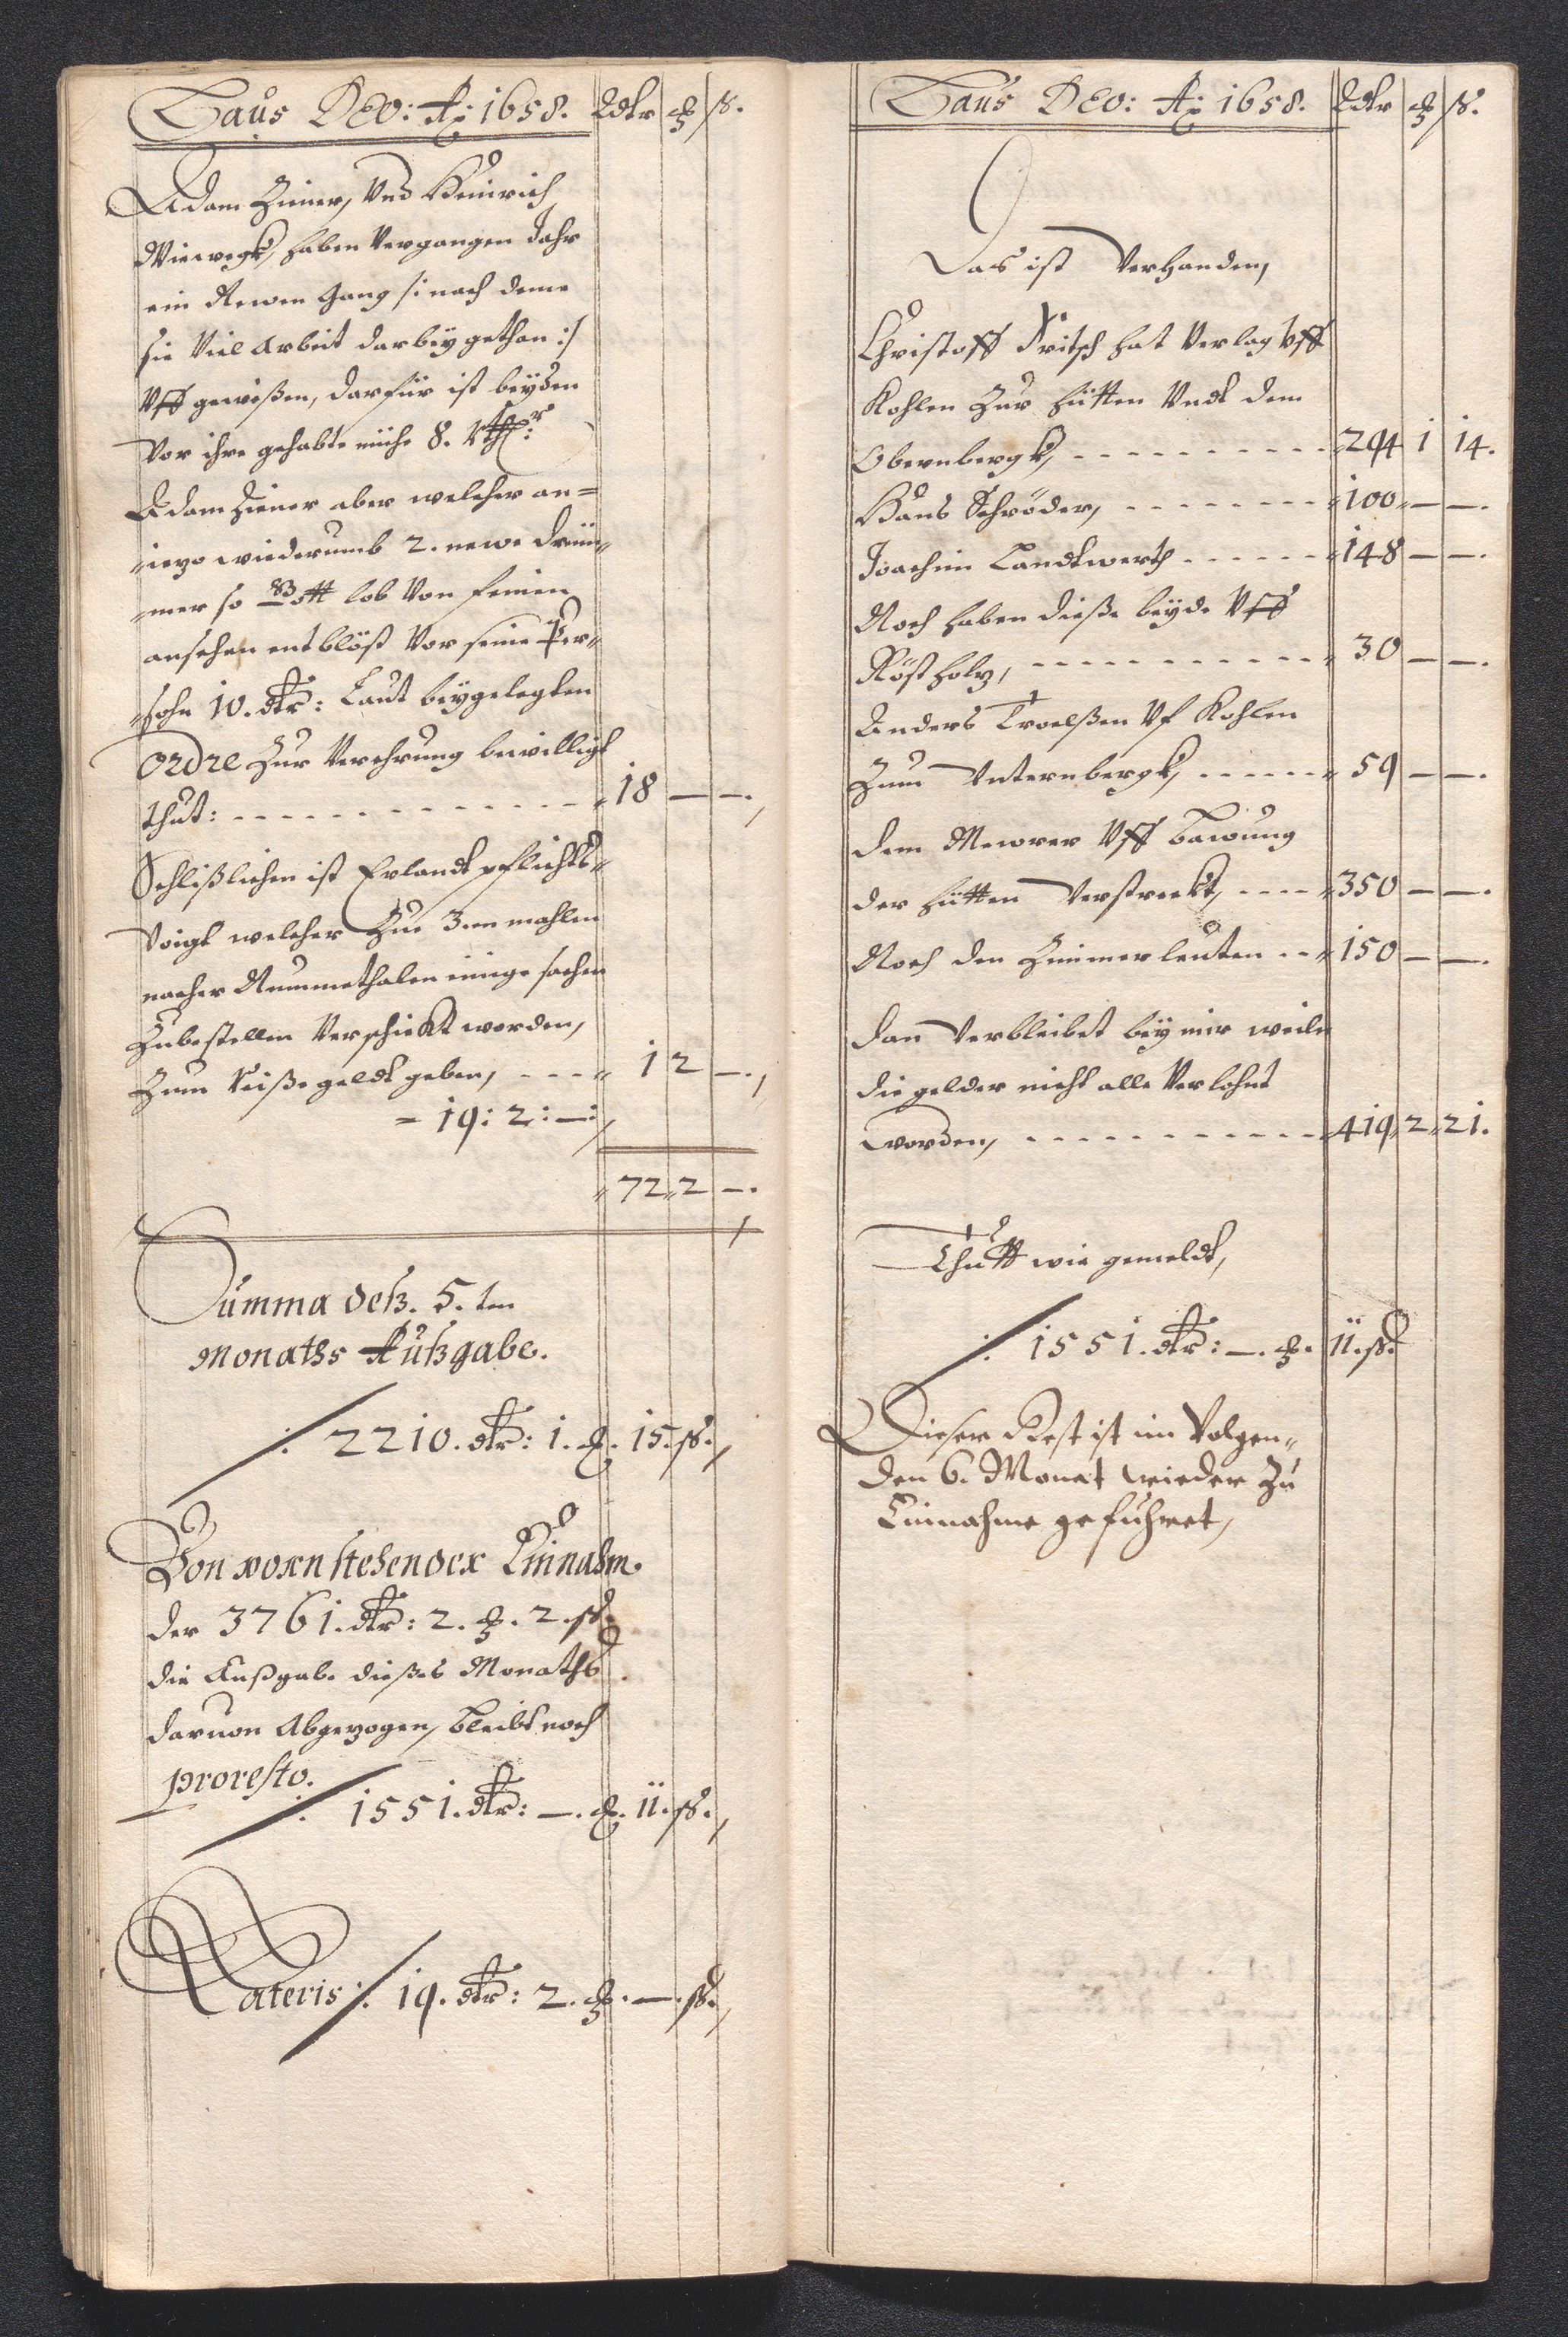 Laus Deo: Ao: 1658. Rdlr ȝ ß.
Adam Ziener, Und Heinrich
Viewegk, haben Vergangen Jahr
ein Newen Gang /: nach deme
sie Viel Arbeit darbey gethan :/
Uff gewißen, darfür ist beyden
Vor ihre gehabte mühe 8. Rthlr:
Adam Ziener aber welcher an=
iezo wiederumb 2. newe Trüm„
„mer so Gott lob Von feinen
ansehen entblöst Vor seine Per„
„sohn 10. dlr: Laut beygelegten
Ordre Zur Verehrung bewilligt
thut: „ 18 — —.
Schlißlichen ist Erlandt pflichts„
Voigt welcher Zue 3.en mahlen
nacher Nummethalen einige sachen
Zubestellen Verschickt worden,
Zum Reiße geldt geben, „ 1 2 —.
= 19: 2: —:
„ 72 „ 2 —.
Summa deß. 5. ten
Monaths Außgabe.
/: 2210. dlr: 1. ȝ. 15. ß.
Von vornstehender Einnahm
der 3761. dlr: 2. ȝ. 2. ß.
die Außgabe dießes Monaths
daruon Abgezogen, bleibt noch
pro resto.
/: 1551. dlr: —. ȝ. 11. ß.
Lateris /: 19. dlr: 2. ȝ. —. ß.
Laus Deo: Ao: 1658. Rdlr ȝ ß.
Das ist Verhanden,
Christoff Fritsch hat Verlag Uff
Kohlen Zur hütten Undt dem
Obernbergk, „ 294 1 14.
Hans Schröder, „ 100 „ — —.
Joachim Landtwerth „ 148 — —.
Noch haben dieße beyde Uff
Röstholz, „ 30 — —.
Anders Troelßen Uf Kohlen
Zum Unternbergk, „ 59 — —.
dem Mewrer Uff bawung
der hütten Verstreckt, „ 350 — —.
Noch den Zimmerleuten „ 150 — —.
dan Verbleibet bey mir weiln
die gelder nicht alle Verlohnt
worden, „ 419 „ 2 „ 21.
Thutt wie gemeldt,
/: 1551. dlr: —. ȝ. 11. ß.
Dieser Rest ist im Volgen„
den 6. Monat wieder Zu
Einnahme gefuhret,